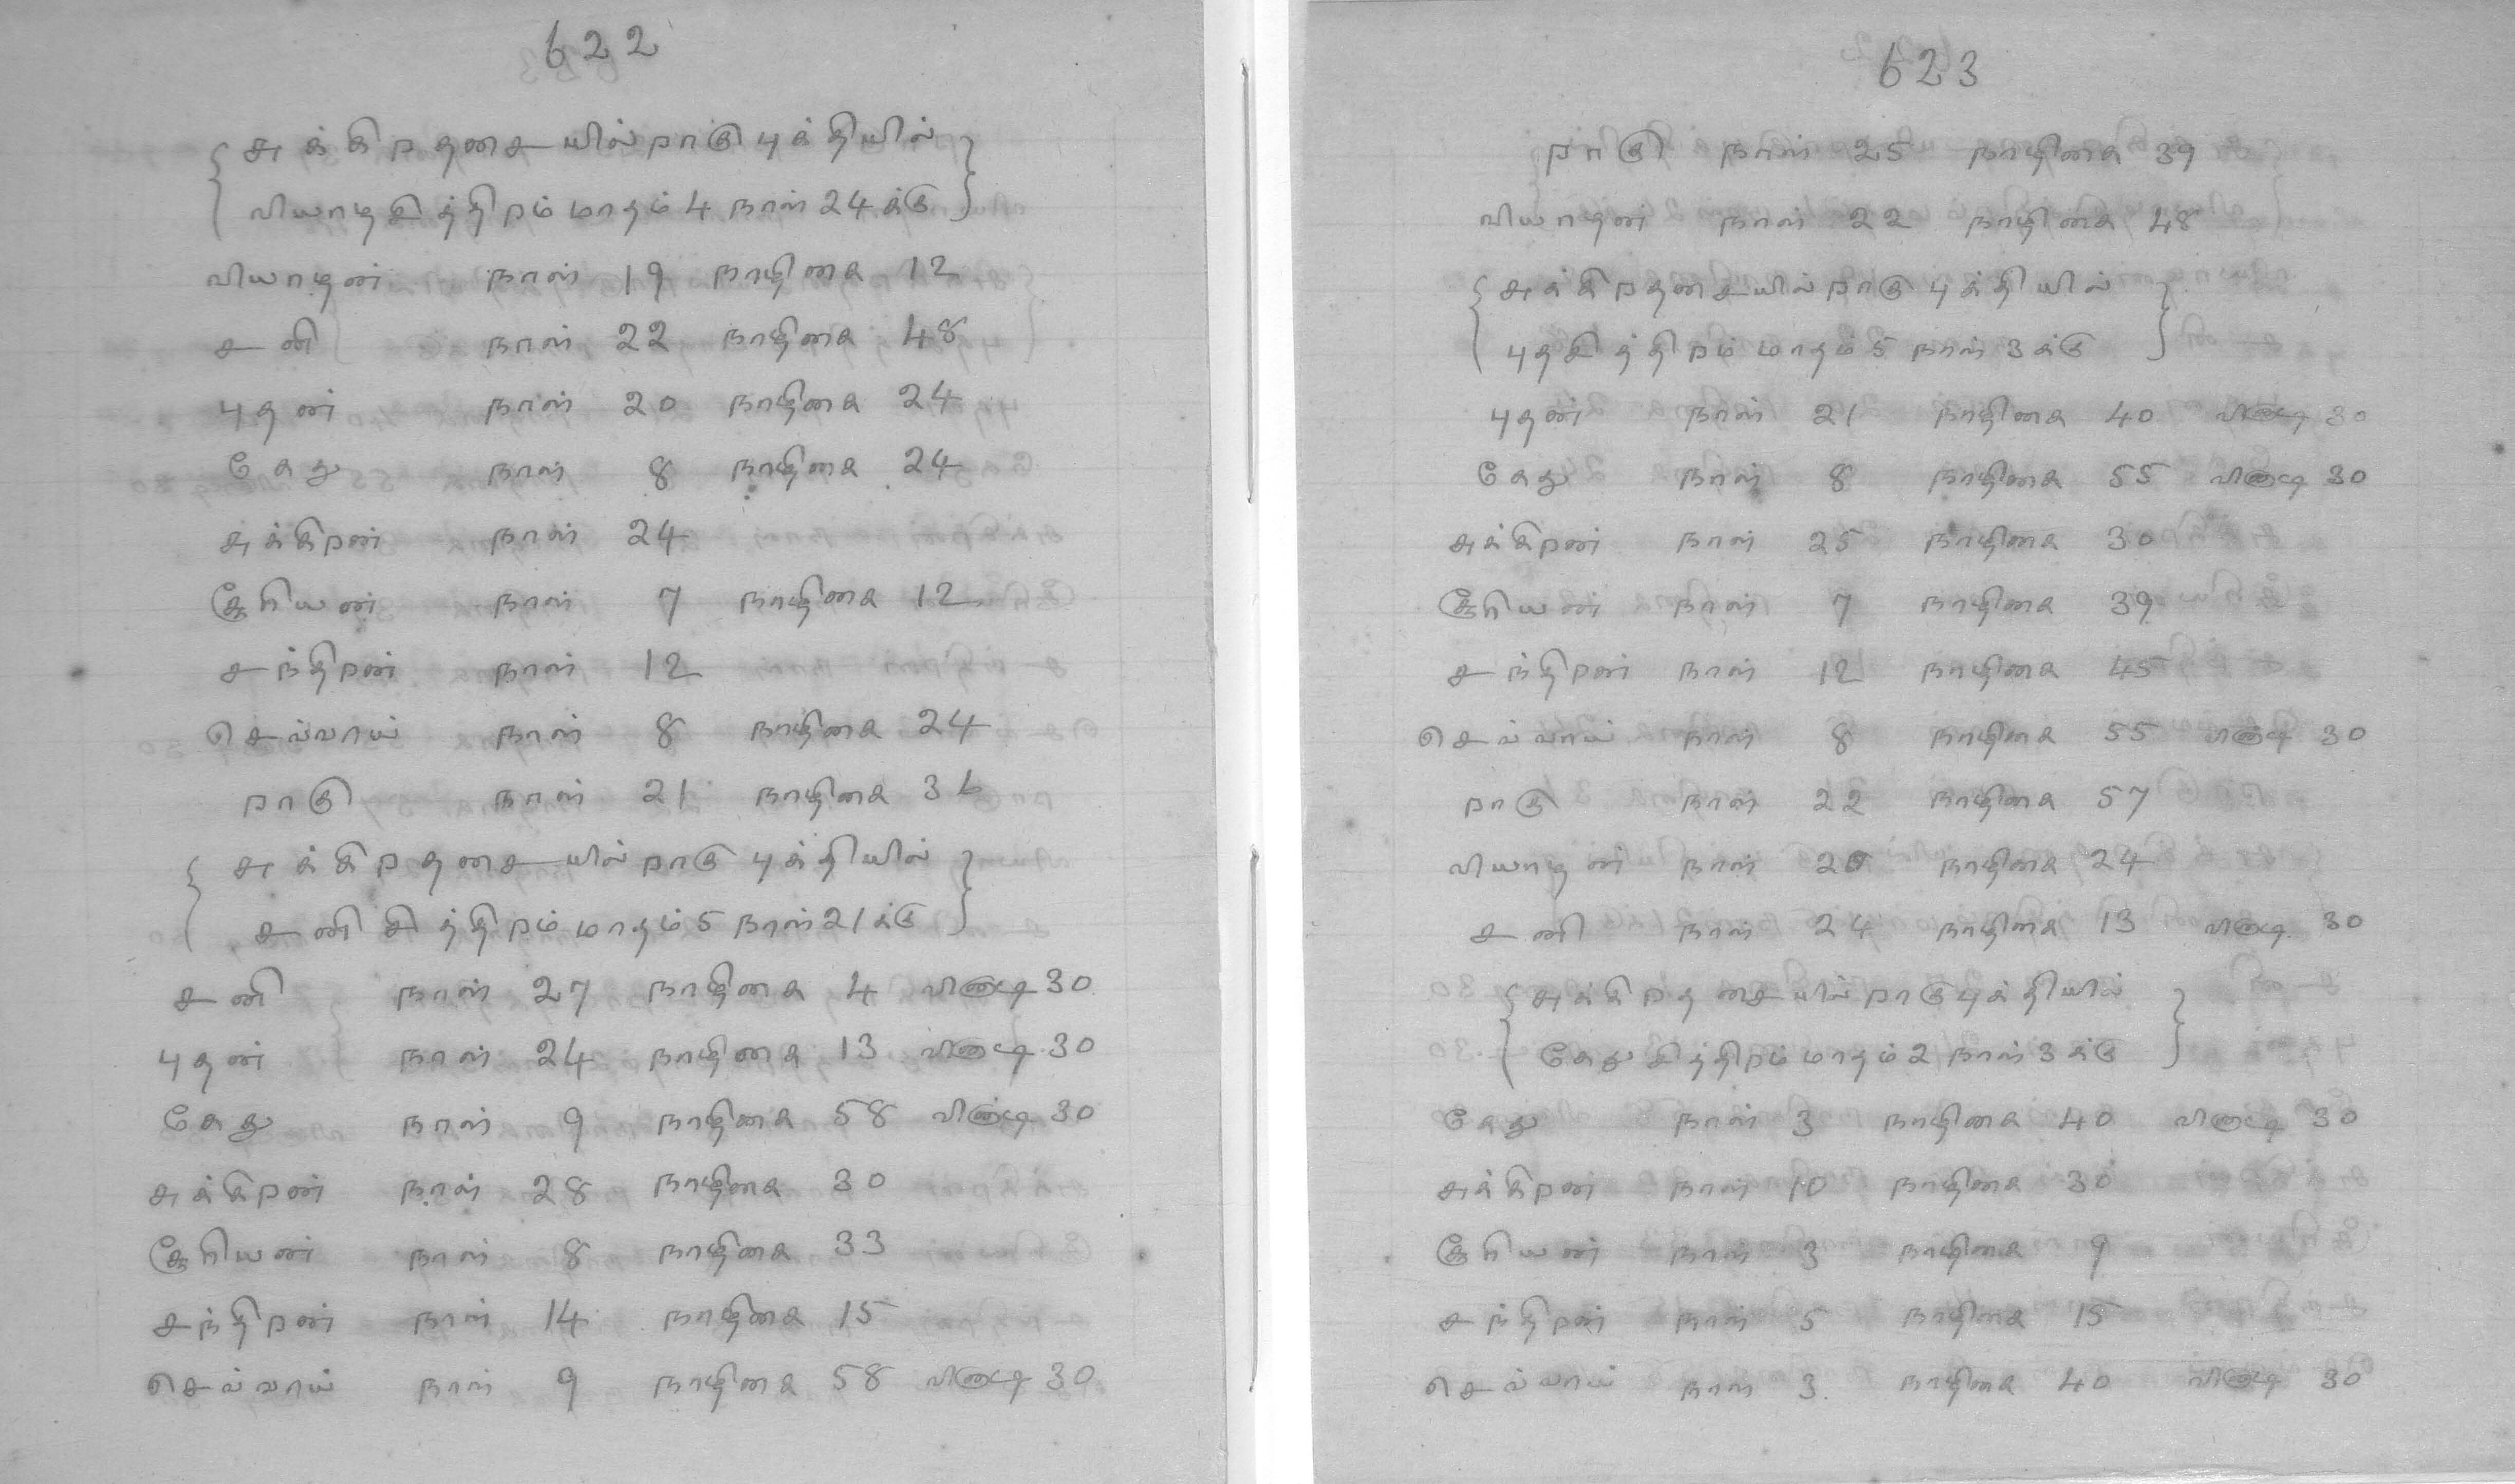 622
சுக்கிறதசையில் றாகு புக்தியில்
வியாழசித்திறம் மாதம் 4 நாள் 24க்கு
வியாழன் நாள் 19 நாழிகை 12
சனி நாள் 22 நாழிகை 48
புதன் நாள் 20 நாழிகை 24
கேது நாள் 8 நாழிகை 24
சுக்கிறன் நாள் 24
சூரியன் நாள் 7 நாழிகை 12
சந்திறன் நாள் 12
செவ்வாய் நாள் 8 நாழிகை 24
றாகு நாள் 21 நாழிகை 36
சுக்கிறதசையில் றாகு புக்தியில்
சனி சித்திறம் மாதம் 5 நாள் 21க்கு
சனி நாள் 27 நாழிகை 4 வினாடி 30
புதன் நாள் 24 நாழிகை 13 வினாடி 30
கேது நாள் 9 நாழிகை 58 வினாடி 30
சுக்கிறன் நாள் 28 நாழிகை 30
சூரியன் நாள் 8 நாழிகை 33
சந்திறன் நாள் 14 நாழிகை 15
செவ்வாய் நாள் 9 நாழிகை 58 வினாடி 30
623
றாகு நாள் 25 நாழிகை 39
வியாழன் நாள் 22 நாழிகை 48
சுக்கிறதசையில் றாகு புக்தியில்
புதசித்திறம் மாதம் 5 நாள் 3க்கு
புதன் நாள் 21 நாழிகை 40 வினாடி 30
கேது நாள் 8 நாழிகை 55 வினாடி 30
சுக்கிறன் நாள் 25 நாழிகை 30
சூரியன் நாள் 7 நாழிகை 39
சந்திறன் நாள் 12 நாழிகை 45
செவ்வாய் நாள் 8 நாழிகை 55 வினாடி 30
றாகு நாள் 22 நாழிகை 57
வியாழன் நாள் 20 நாழிகை 24
சனி நாள் 24 நாழிகை 13 வினாடி 30
சுக்கிறதசையில் றாகு புக்தியில்
கேதுசித்திறம் மாதம் 2 நாள் 3க்கு
கேது நாள் 3 நாழிகை 40 வினாடி 30
சுக்கிறன் நாள் 10 நாழிகை 30
சூரியன் நாள் 3 நாழிகை 9
சந்திறன் நாள் 5 நாழிகை 15
செவ்வாய் நாள் 3 நாழிகை 40 வினாடி 30